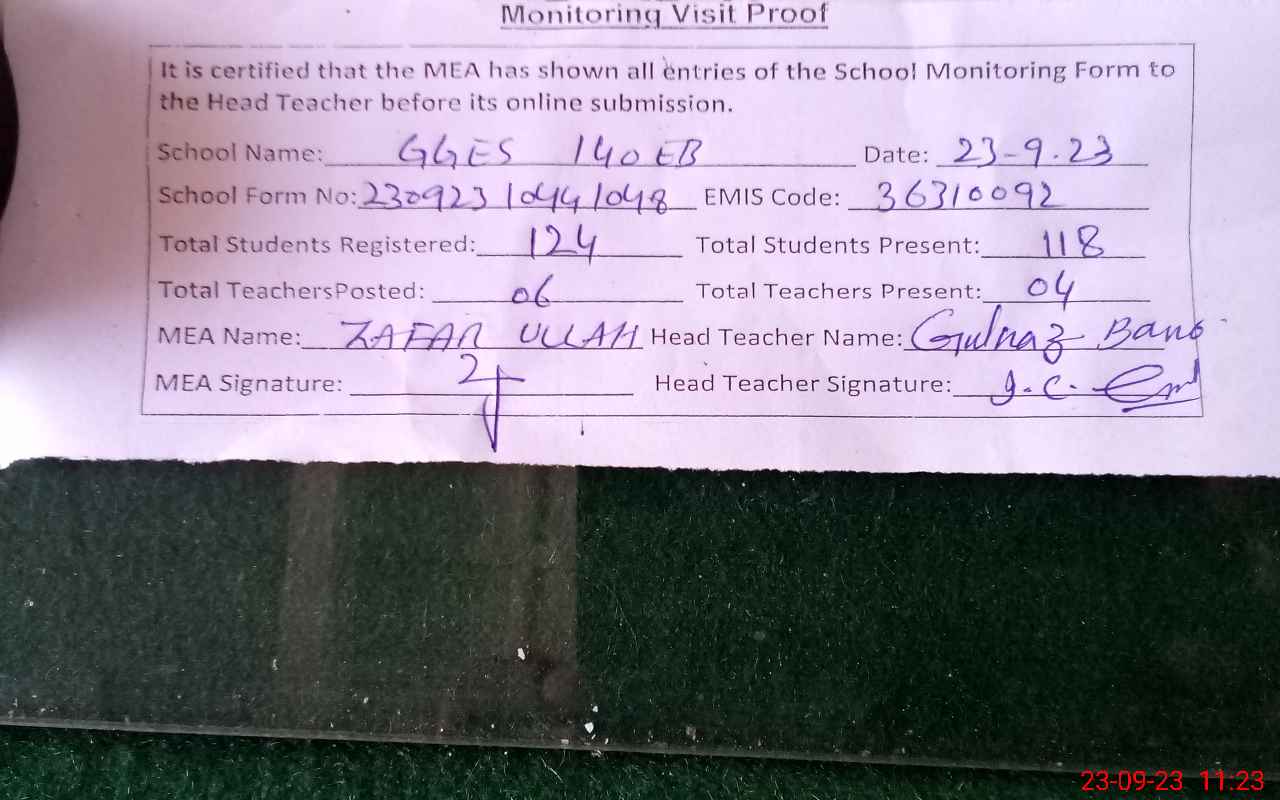 Monitoring Visit Proof
It is certified that the MEA has shown all entries of the School Monitoring Form to
the Head Teacher before its online submission.
School Name: GGES 140 EB Date: 23-9.23
School Form No: 230923 1044 1048 EMIS Code: 36310092
Total Students Registered: 124 Total Students Present: 118
Total TeachersPosted: 06 Total Teachers Present: 04
MEA Name: ZAFAR ULLAH Head Teacher Name: Gulnaz Bano
MEA Signature: Head Teacher Signature:
23-09-23 11:23